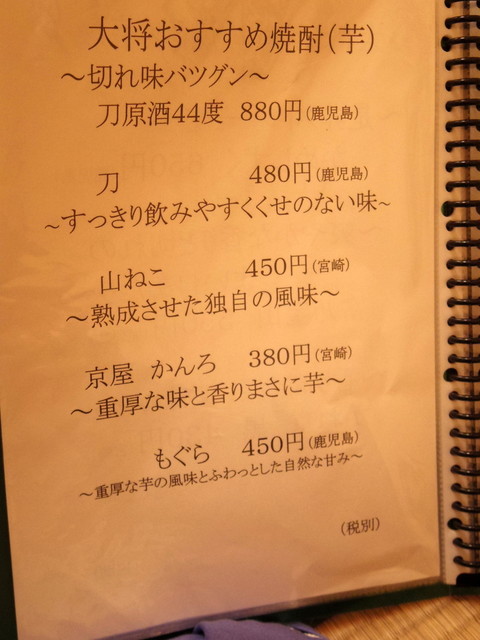 大将おすすめ焼酎(芋)
～切れ味バツグン～
刀原酒44度 880円(鹿児島)
刀 480円(鹿児島)
～すっきり飲みやすくくせのない味～
山ねこ 450円(宮崎)
～熟成させた独自の風味～
京屋 かんろ 380円(宮崎)
～重厚な味と香りまさに芋～
もぐら 450円(鹿児島)
～重厚な芋の風味とふわっとした自然な甘み～
(税別)